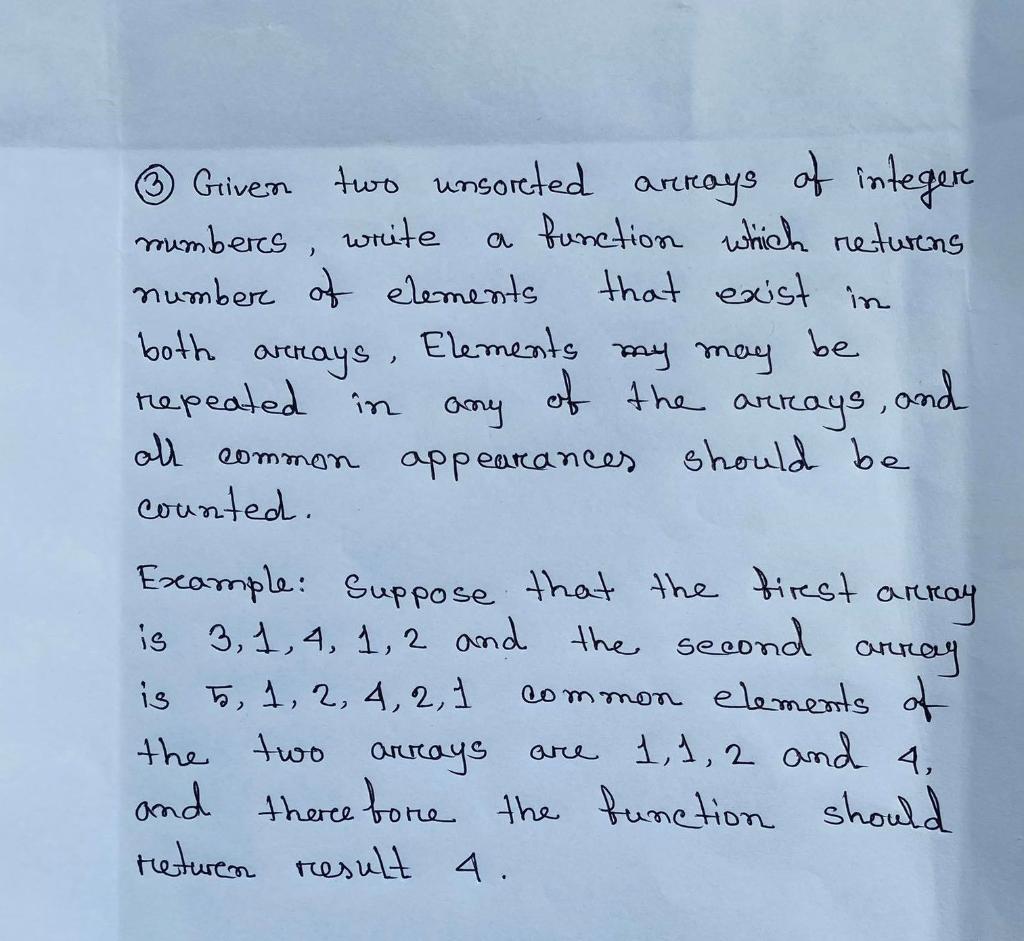 ③ Given two unsorted arrays of integer
numbers, write a function which returns
number of elements that exist in
both arrays, Elements my may be
repeated in any of the arrays, and
all common appearances should be
counted.
Example: Suppose that the first array
is 3, 1, 4, 1, 2 and the second array
is 5, 1, 2, 4, 2, 1 common elements of
the two arrays are 1, 1, 2 and 4,
and therefore the function should
return result 4.